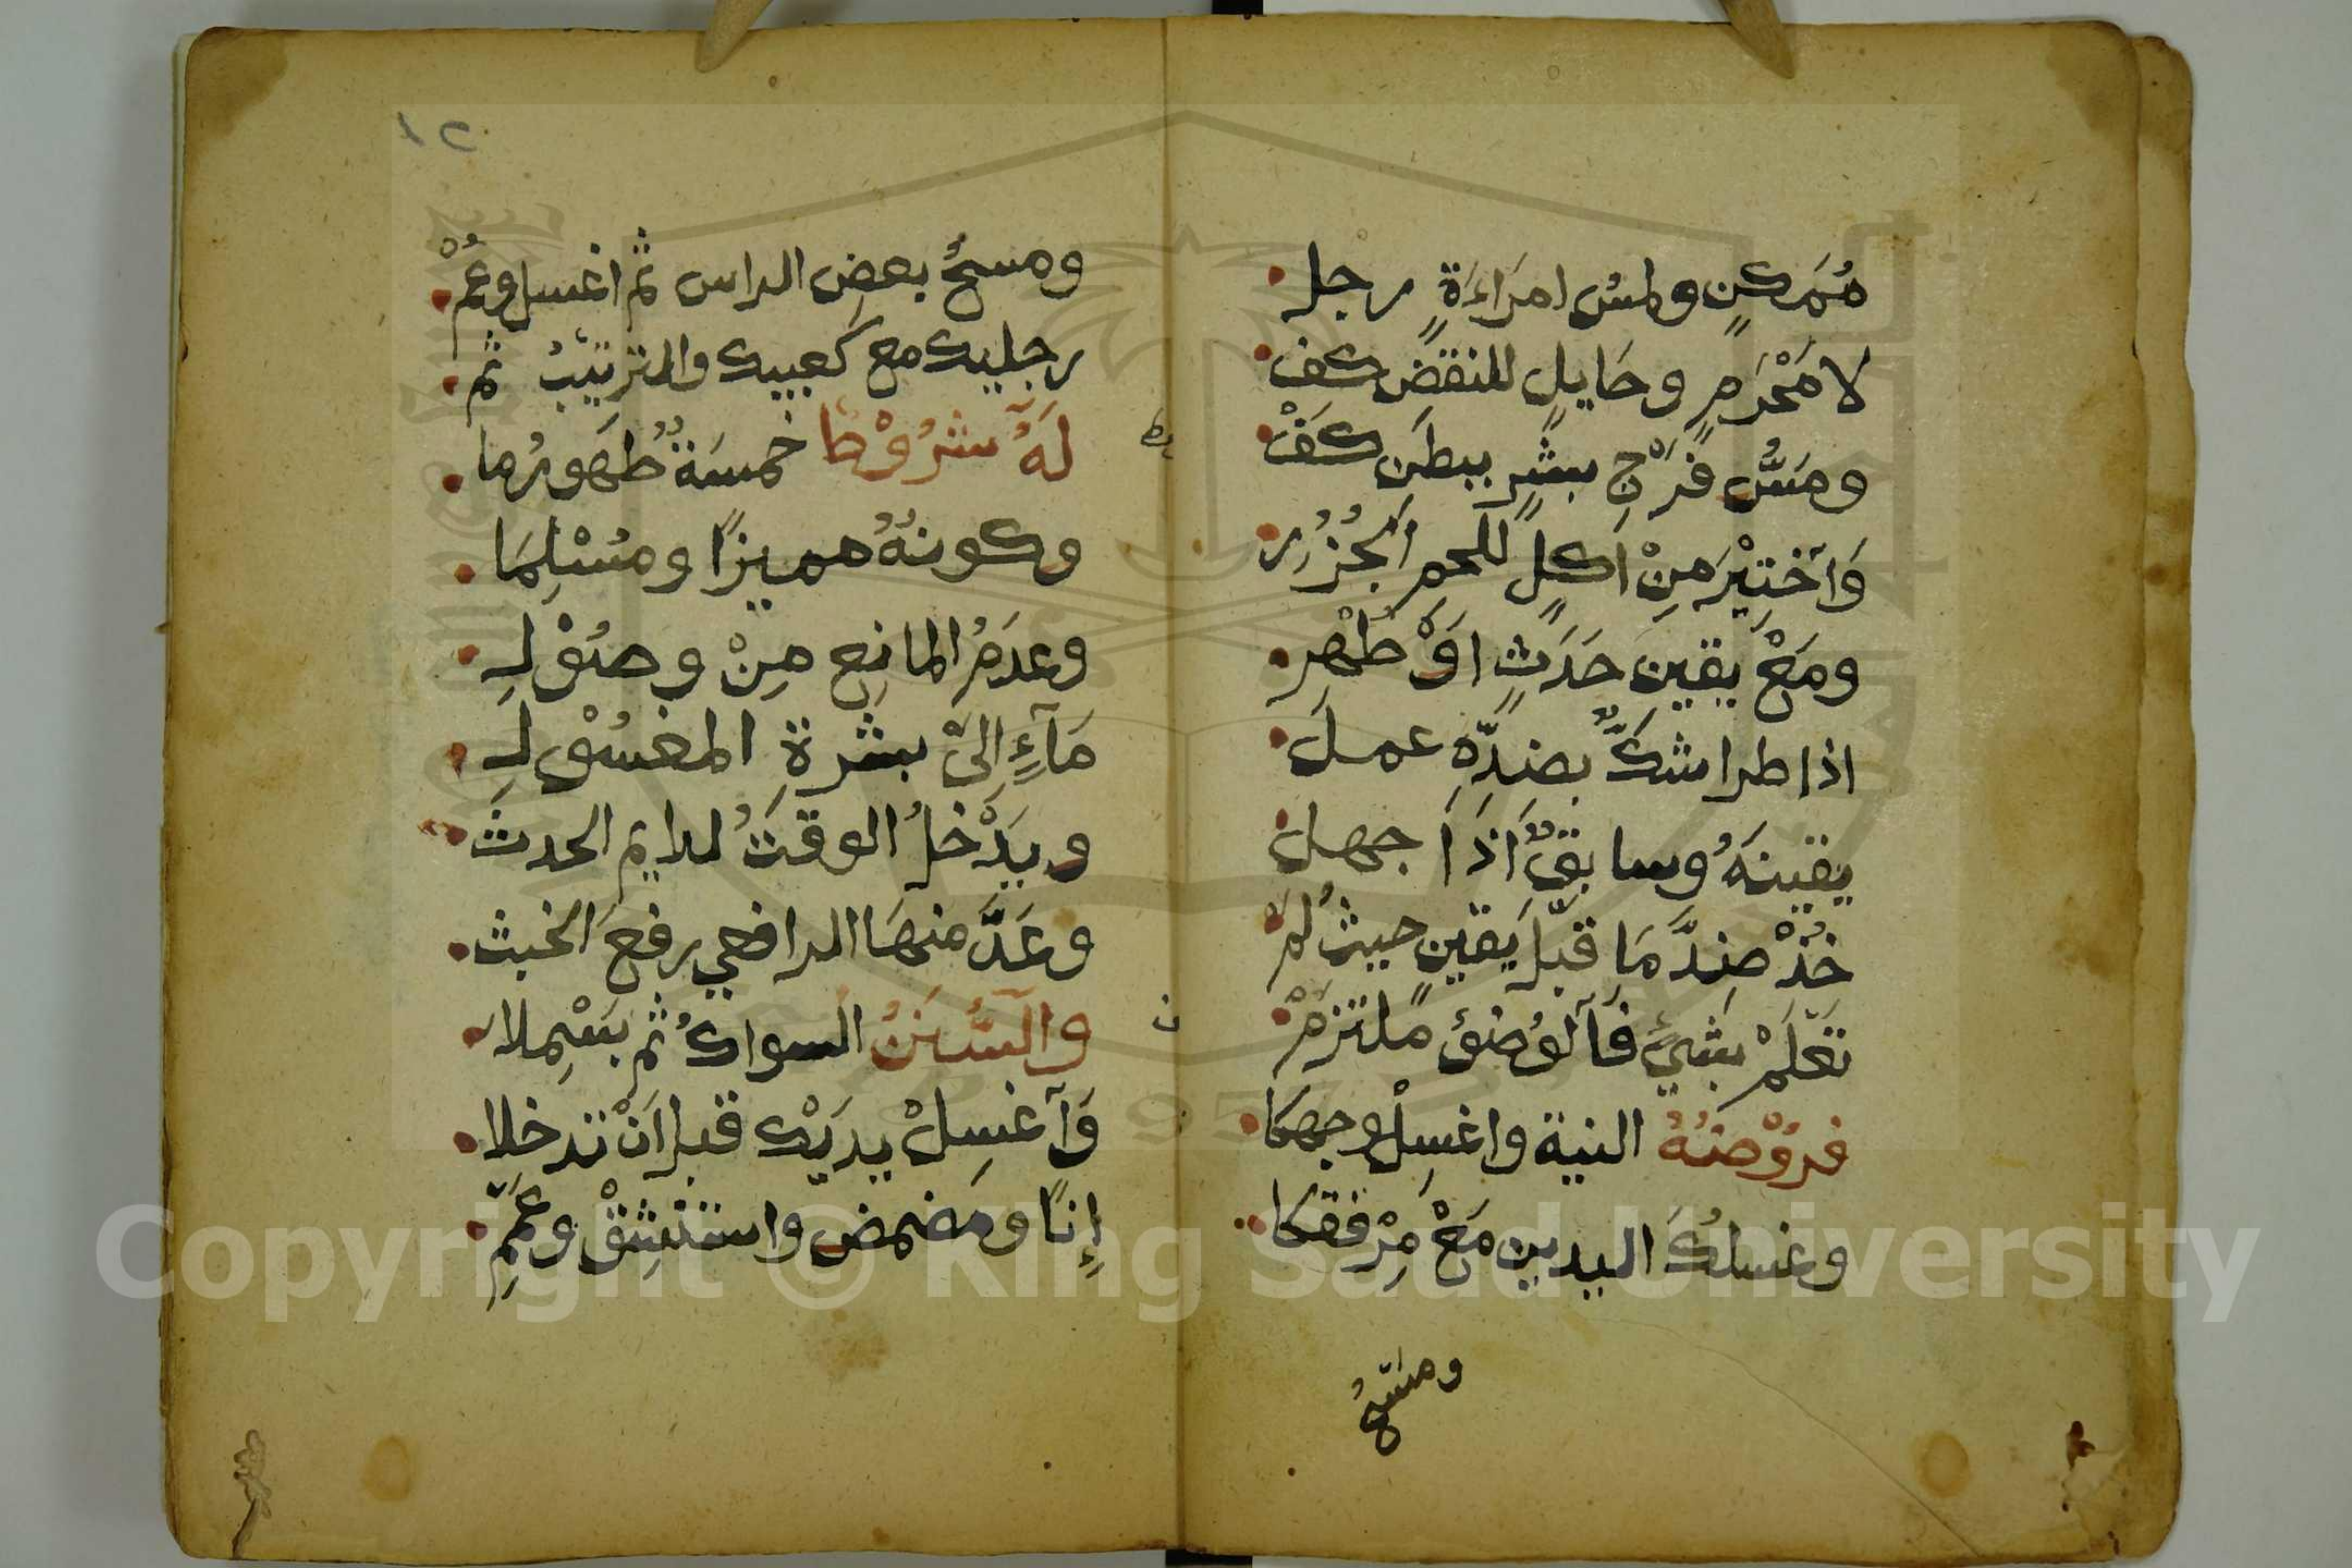 مُمَكنٍ ولمسُ امرَاءَةٍ رجل
لا مَحْرَمٍ وحَايلٍ للنقضِ كف
ومَسُّ فَرْجِ بشرٍ ببطنِ كَفْ
وَآخْتِيْرَ مِنْ اَكلٍ للحمِ الجُزُرِ
ومَعْ يَقينِ حَدَثٍ اوْ طُهْرِ
اذا طرا شكٌّ بضدِّهِ عملَ
يقينهُ وسابقٌ اذَا جهل
خُذْ ضِدَّ مَا قبل يَقينٍ حيثُ لمْ
تعْلَمْ بشيئٍ فَآلوُضوُ ملتزمْ
فروْضهُ النية واغسِلْ وجهكا
وغسلكَ اليدين مَعْ مِرْفقكا
ومسْحُ
١٢
ومسحُ بعضِ الراس ثمَّ اغسل وعُمْ
رجليك مع كعبيك والترتيبُ ثم
لَهُ شرُوْطٌ خمسَةٌ طُهُورُما
وكونهُ مميزًا ومُسْلِمَا
وعدَمُ المانِعِ مِنْ وصُوْلِ
مَآءٍ الىَ بشرةِ المغسُوْلِ
ويَدْخلُ الوقتَ لدايم الحدثَ
وعَدَّ منهَا الرافعي رفعَ الخبث
والسُّنَنُ السواكُ ثم بَسْمِلا
وَآغسِلْ يدَيْك قبل اَنْ تدخلا
إِنًا ومَضمض واسْتنْشِقْ وعَمِّمِ
Copyright © King Saud University
1957